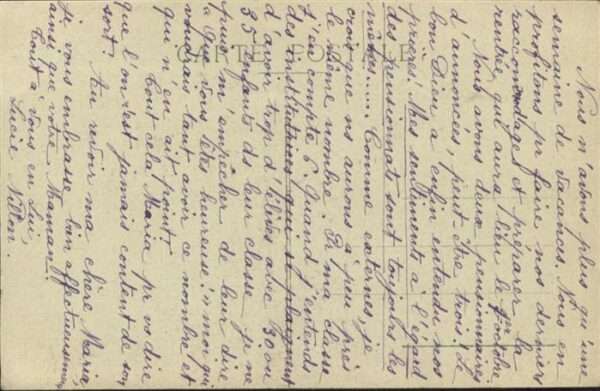 Nous n'avons plus qu'une
semaine de vacances. Nous en
profitons pr faire nos derniers
raccomodages et préparer la
rentrée qui aura lieu le 1er octobre
Nous avons deux pensionnaires
d'annoncées, peut-être trois. Le
bon Dieu a enfin entendu nos
prières. Mes sentiments à l'égard
des pensionnats sont toujours les
mêmes..... Comme externes, je
crois que ns aurons à peu près
le même nombre. Ds ma classe
j'en compte 6. Quand j'entends
des institutrices qui se plaignent
d'avoir trop d'élèves avec 30 ou
35 enfants ds leur classe je ne
puis m'empêcher de leur dire
"Que vous êtes heureuse!" moi qui
voudrais tant avoir ce nombre et
qui n'en ait point!
Tout cela Maria pr vs dire
que l'on n'est jamais content de son
sort!
Au revoir ma chère Maria,
je vous embrasse bien affectueusement
ainsi que votre Maman.
Tout à vous en Lui,
Lucie
CARTE POSTALE